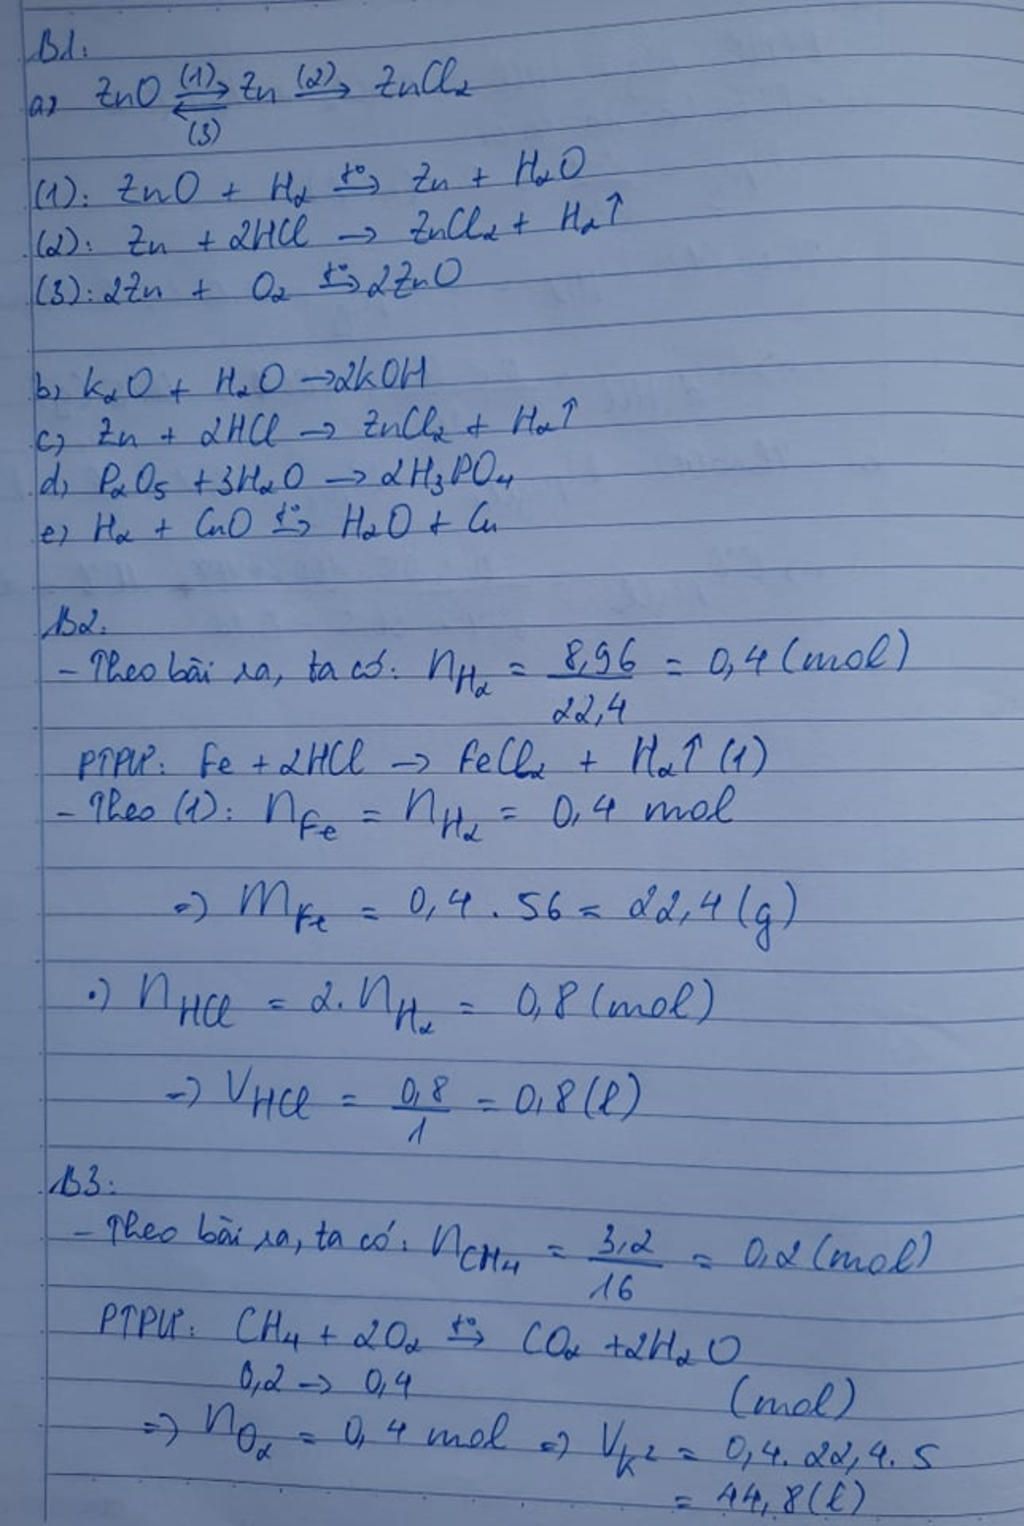 B1:
a) ZnO ⇌ Zn → ZnCl₂ (1) (2) (3)
(1): ZnO + H₂ →t° Zn + H₂O
(2): Zn + 2HCl → ZnCl₂ + H₂↑
(3): 2Zn + O₂ →t° 2ZnO
b) K₂O + H₂O → 2KOH
c) Zn + 2HCl → ZnCl₂ + H₂↑
d) P₂O₅ + 3H₂O → 2H₃PO₄
e) H₂ + CuO →t° H₂O + Cu
B2:
- Theo bài ra, ta có: nH₂ = 8,96/22,4 = 0,4 (mol)
PTPƯ: Fe + 2HCl → FeCl₂ + H₂↑ (1)
- Theo (1): nFe = nH₂ = 0,4 mol
=) mFe = 0,4 . 56 = 22,4 (g)
.) nHCl = 2. nH₂ = 0,8 (mol)
=) VHCl = 0,8/1 = 0,8 (l)
B3:
- Theo bài ra, ta có: nCH₄ = 3,2/16 = 0,2 (mol)
PTPƯ: CH₄ + 2O₂ →t° CO₂ + 2H₂O
0,2 → 0,4 (mol)
=) nO₂ = 0,4 mol =) Vk² = 0,4. 22,4. 5
= 44,8 (l)